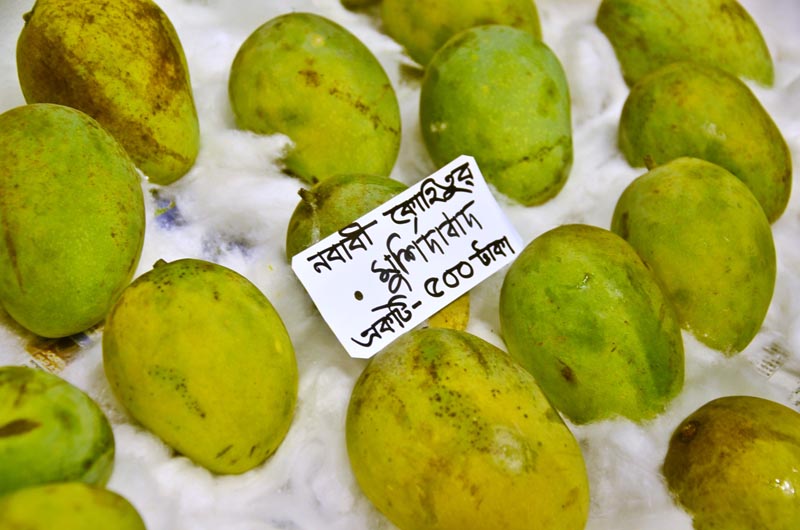 নবাবী কোহিতুর
মুর্শিদাবাদ
একটি - ৫০০ টাকা